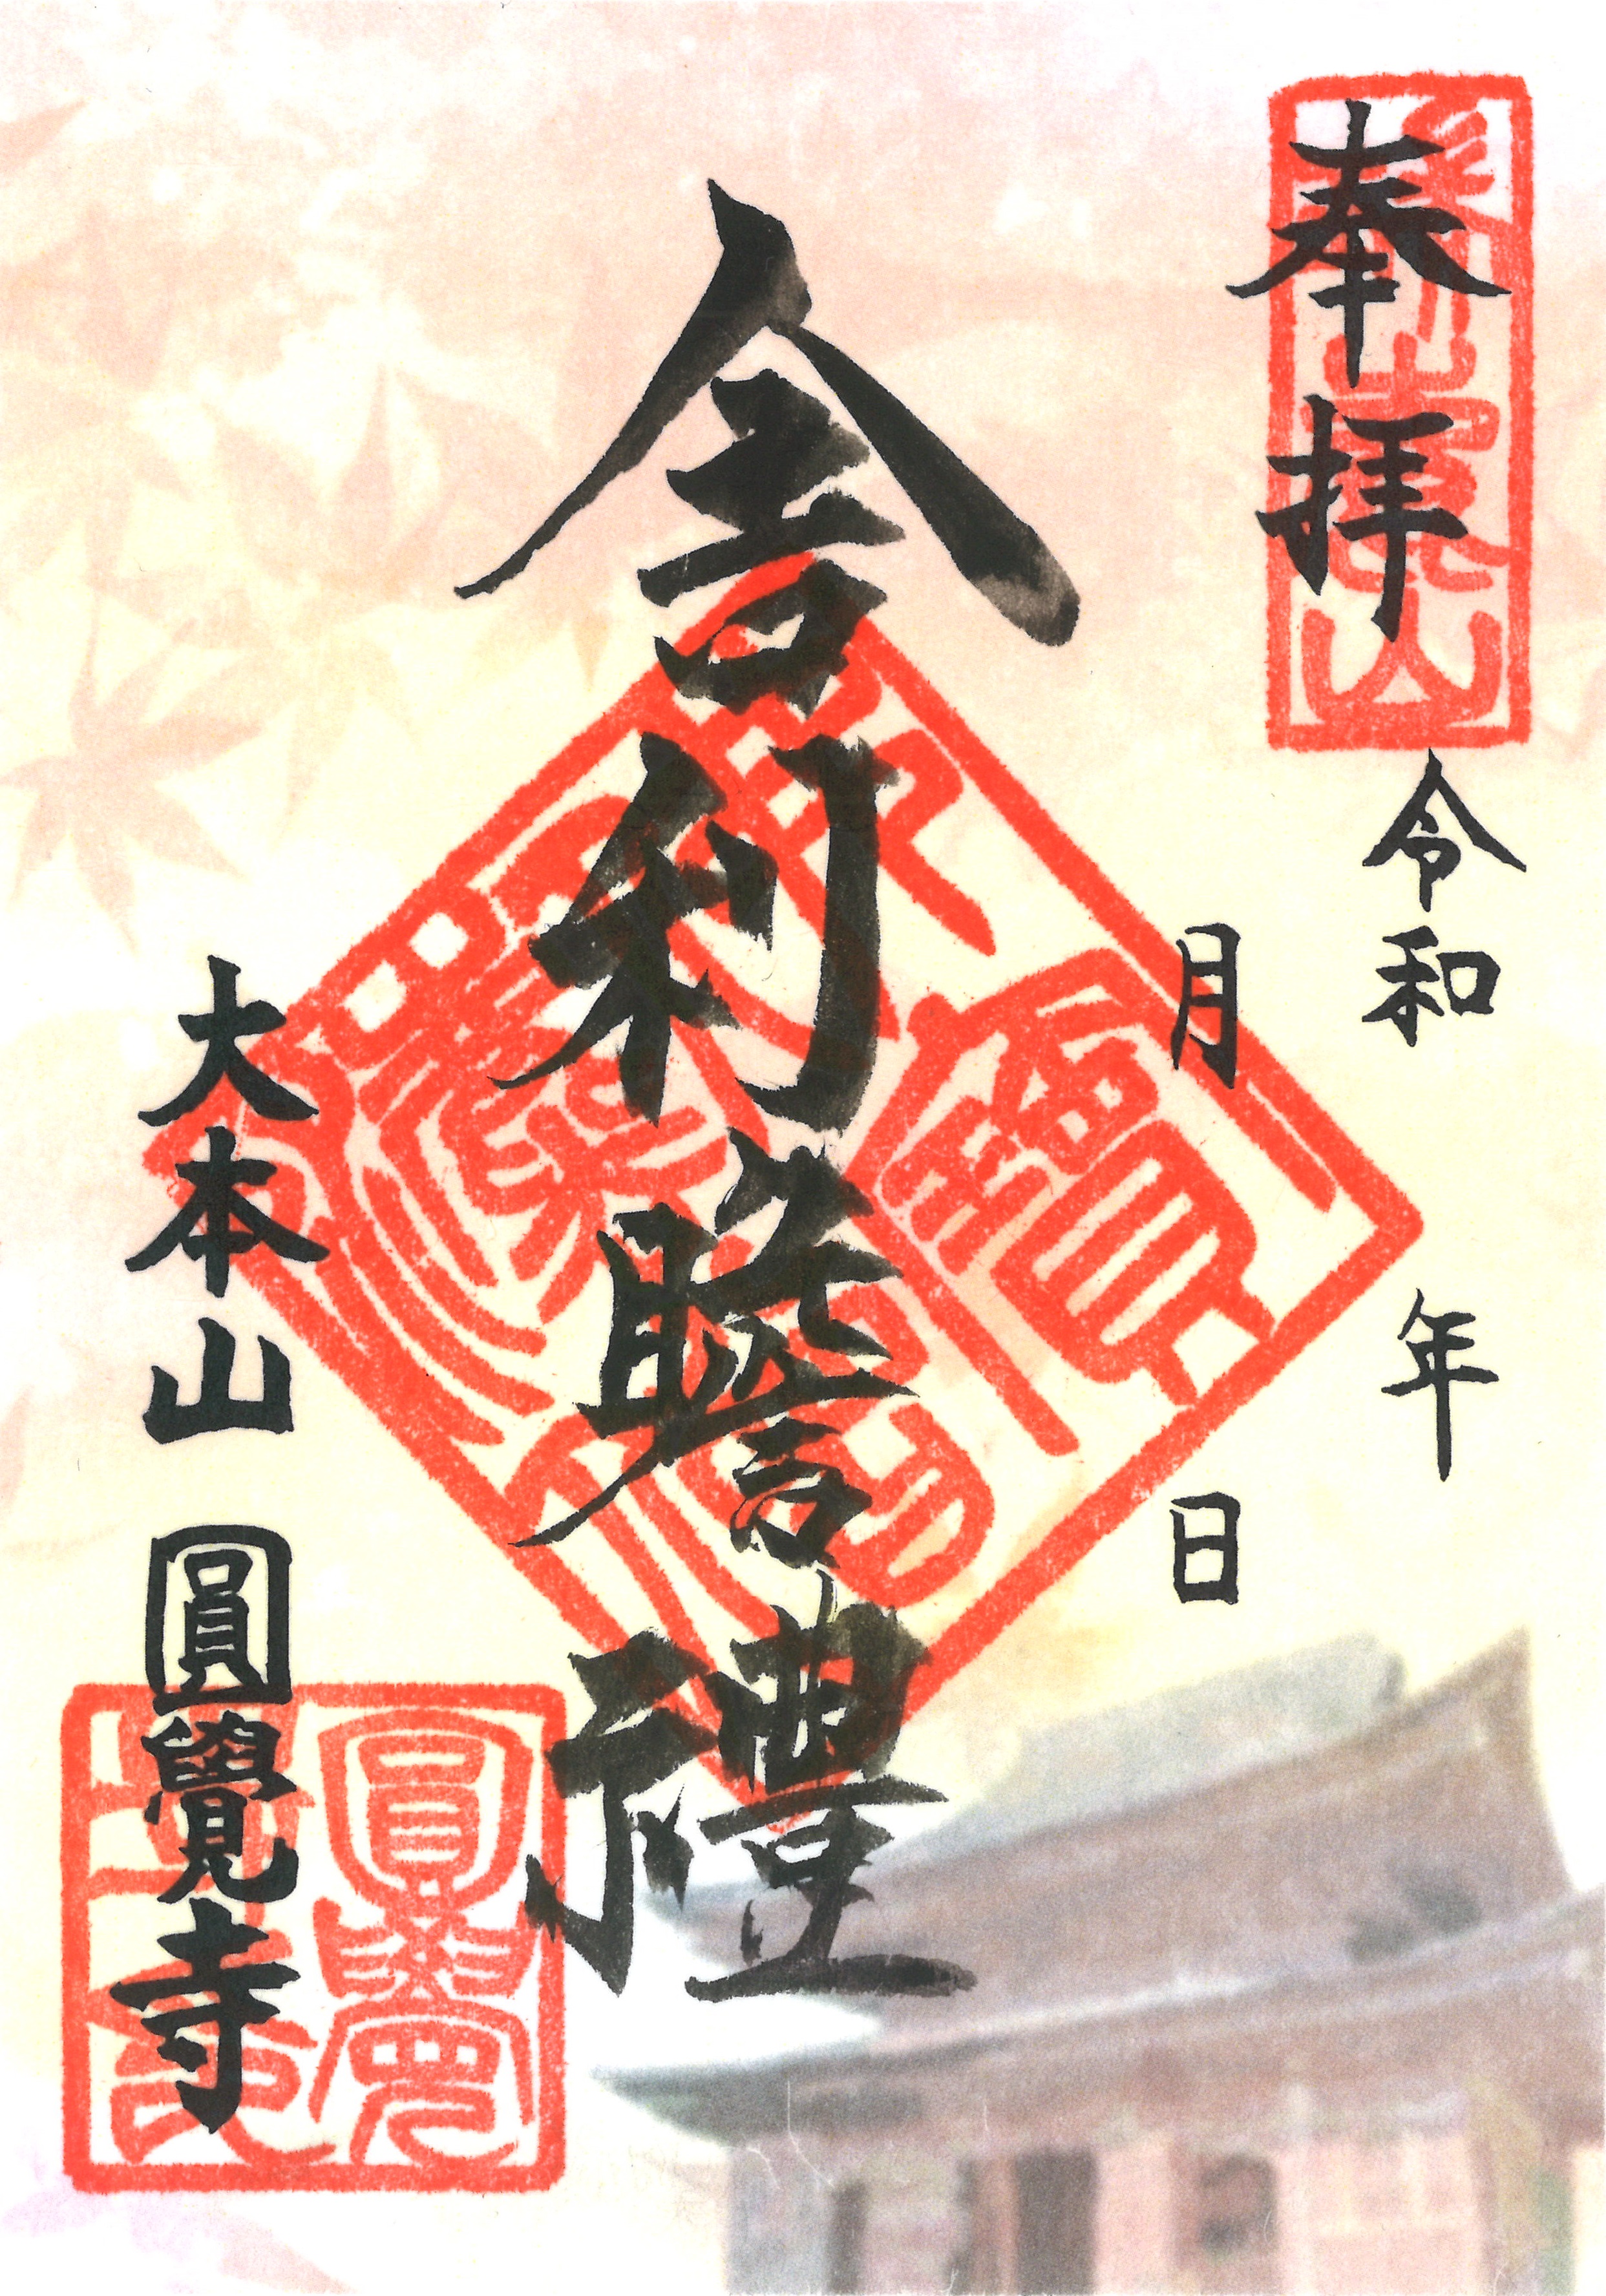 奉拝
令和 年
月 日
舎利瞻禮
大本山 圓覺寺